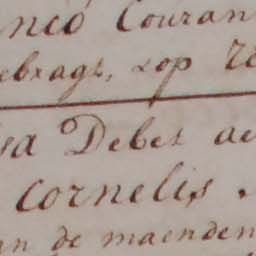 nco Couran
ebragt, sop
sa Debet ae
cornelis.
an de maenden